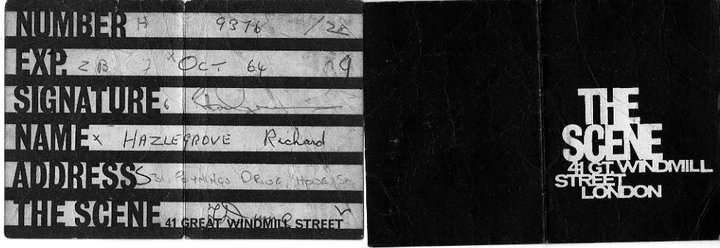 NUMBER H 9376 /
EXP. OCT 64
SIGNATURE
NAME x HAZLEGROVE Richard
ADDRESS
THE SCENE 41 GREAT WINDMILL STREET
THE
SCENE
41 GT. WINDMILL
STREET
LONDON